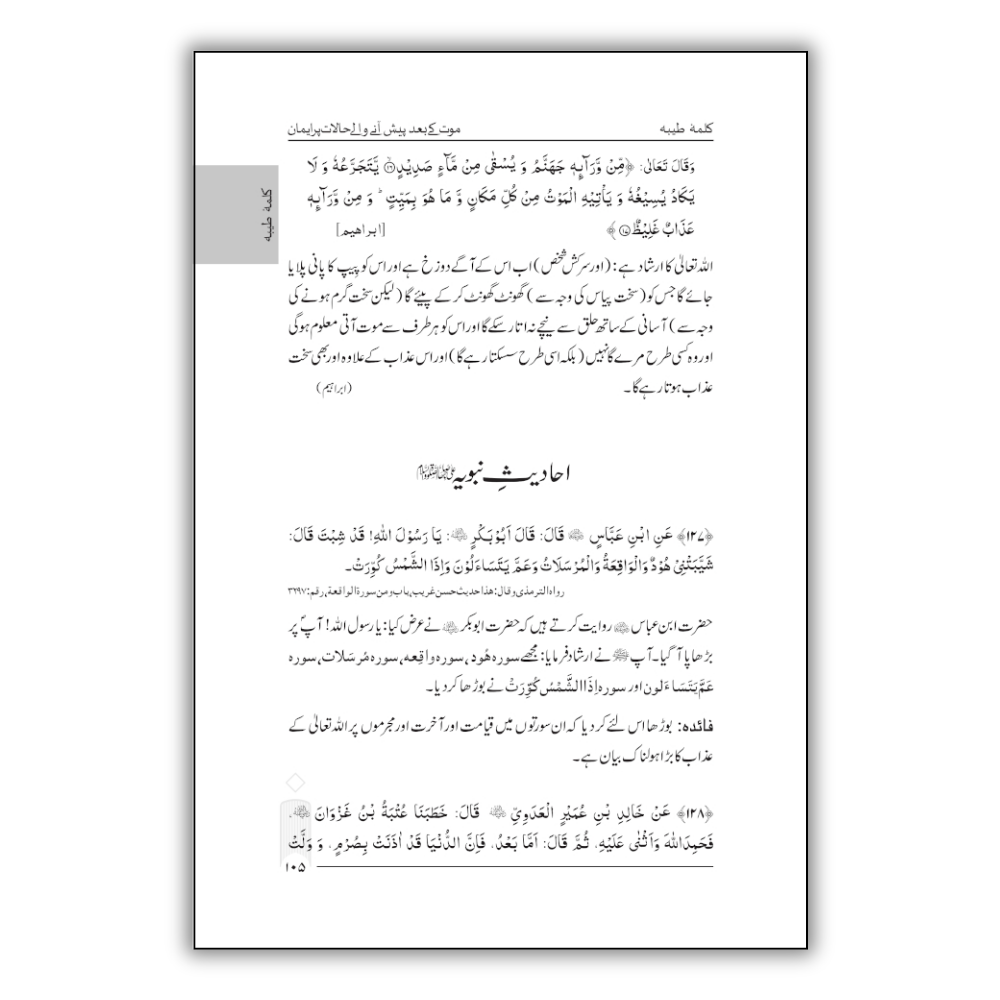 کلمۂ طیبہ
موت کے بعد پیش آنے والے حالات پر ایمان
کلمۂ طیبہ
وَقَالَ تَعَالٰی: ﴿مِّنْ وَّرَآئِهٖ جَهَنَّمُ وَ يُسْقٰى مِنْ مَّآءٍ صَدِيْدٍ ۙ﴿۱۶﴾ يَّتَجَرَّعُهٗ وَ لَا
يَكَادُ يُسِيْغُهٗ وَ يَاْتِيْهِ الْمَوْتُ مِنْ كُلِّ مَكَانٍ وَّ مَا هُوَ بِمَيِّتٍ ؕ وَ مِنْ وَّرَآئِهٖ
عَذَابٌ غَلِيْظٌ ﴿۱۷﴾﴾ [ابراھیم]
اللہ تعالیٰ کا ارشاد ہے: (اور سرکش شخص) اب اس کے آگے دوزخ ہے اور اس کو پیپ کا پانی پلایا
جائے گا جس کو (سخت پیاس کی وجہ سے) گھونٹ گھونٹ کر کے پیئے گا (لیکن سخت گرم ہونے کی
وجہ سے) آسانی کے ساتھ حلق سے نیچے نہ اتار سکے گا اور اس کو ہر طرف سے موت آتی معلوم ہوگی
اور وہ کسی طرح مرے گا نہیں (بلکہ اسی طرح سسکتا رہے گا) اور اس عذاب کے علاوہ اور بھی سخت
عذاب ہوتا رہے گا۔ (ابراہیم)
احادیثِ نبویہ ﷺ
﴿۱۲۷﴾ عَنِ ابْنِ عَبَّاسٍ ؓ قَالَ: قَالَ اَبُوْبَکْرٍ ؓ: یَا رَسُوْلَ اللهِ! قَدْ شِبْتَ قَالَ:
شَیَّبَتْنِیْ هُوْدٌ وَالْوَاقِعَةُ وَالْمُرْسَلَاتُ وَعَمَّ یَتَسَاءَلُوْنَ وَاِذَا الشَّمْسُ کُوِّرَتْ۔
رواہ الترمذی وقال: ھذا حدیث حسن غریب، باب ومن سورة الواقعة، رقم: ۳۲۹۷
حضرت ابن عباس ؓ روایت کرتے ہیں کہ حضرت ابوبکر ؓ نے عرض کیا: یا رسول اللہ! آپؐ پر
بڑھاپا آ گیا۔ آپ ﷺ نے ارشاد فرمایا: مجھے سورہ ھُود، سورہ واقِعہ، سورہ مُرسَلات، سورہ
عَمَّ یَتَسَاءَلون اور سورہ اِذَا الشَّمْسُ کُوِّرَتْ نے بوڑھا کر دیا۔
فائدہ: بوڑھا اس لئے کر دیا کہ ان سورتوں میں قیامت اور آخرت اور مجرموں پر اللہ تعالیٰ کے
عذاب کا بڑا ہولناک بیان ہے۔
﴿۱۲۸﴾ عَنْ خَالِدِ بْنِ عُمَیْرٍ الْعَدَوِیِّ ؒ قَالَ: خَطَبَنَا عُتْبَةُ بْنُ غَزْوَانَ ؓ،
فَحَمِدَ اللهَ وَاَثْنٰی عَلَیْهِ، ثُمَّ قَالَ: اَمَّا بَعْدُ، فَاِنَّ الدُّنْیَا قَدْ اٰذَنَتْ بِصُرْمٍ، وَ وَلَّتْ
۱۰۵